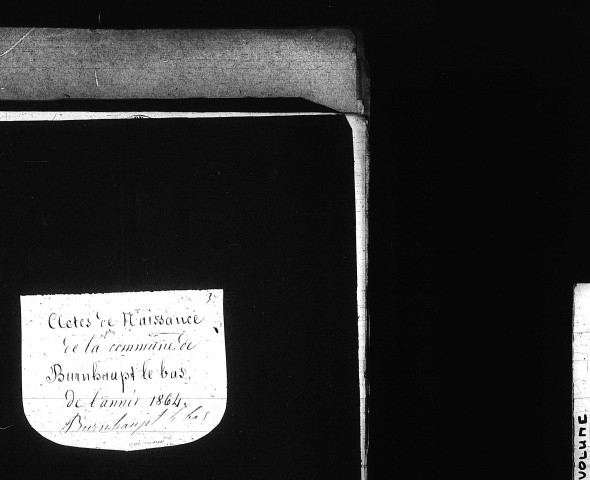 3
Actes de Naissance
de la commune de
Burnhaupt le bas,
de l'année 1864.
Burnhaupt le bas
VOLUME